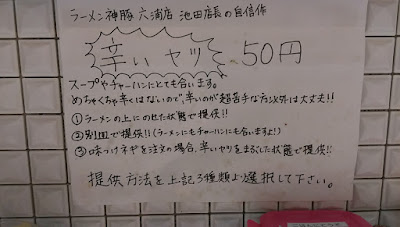 ラーメン神豚 六浦店 池田店長の自信作
辛いヤツ 50円
スープやチャーハンにとても合います。
めちゃくちゃ辛くはないので、辛いのが超苦手な方以外は大丈夫!!
①ラーメンの上にのせた状態で提供!!
②別皿で提供!!(ラーメンにもチャーハンにも合いますよ!)
③味つけネギを注文の場合、辛いヤツをまぶした状態で提供!!
提供方法を上記3種類より選択して下さい。